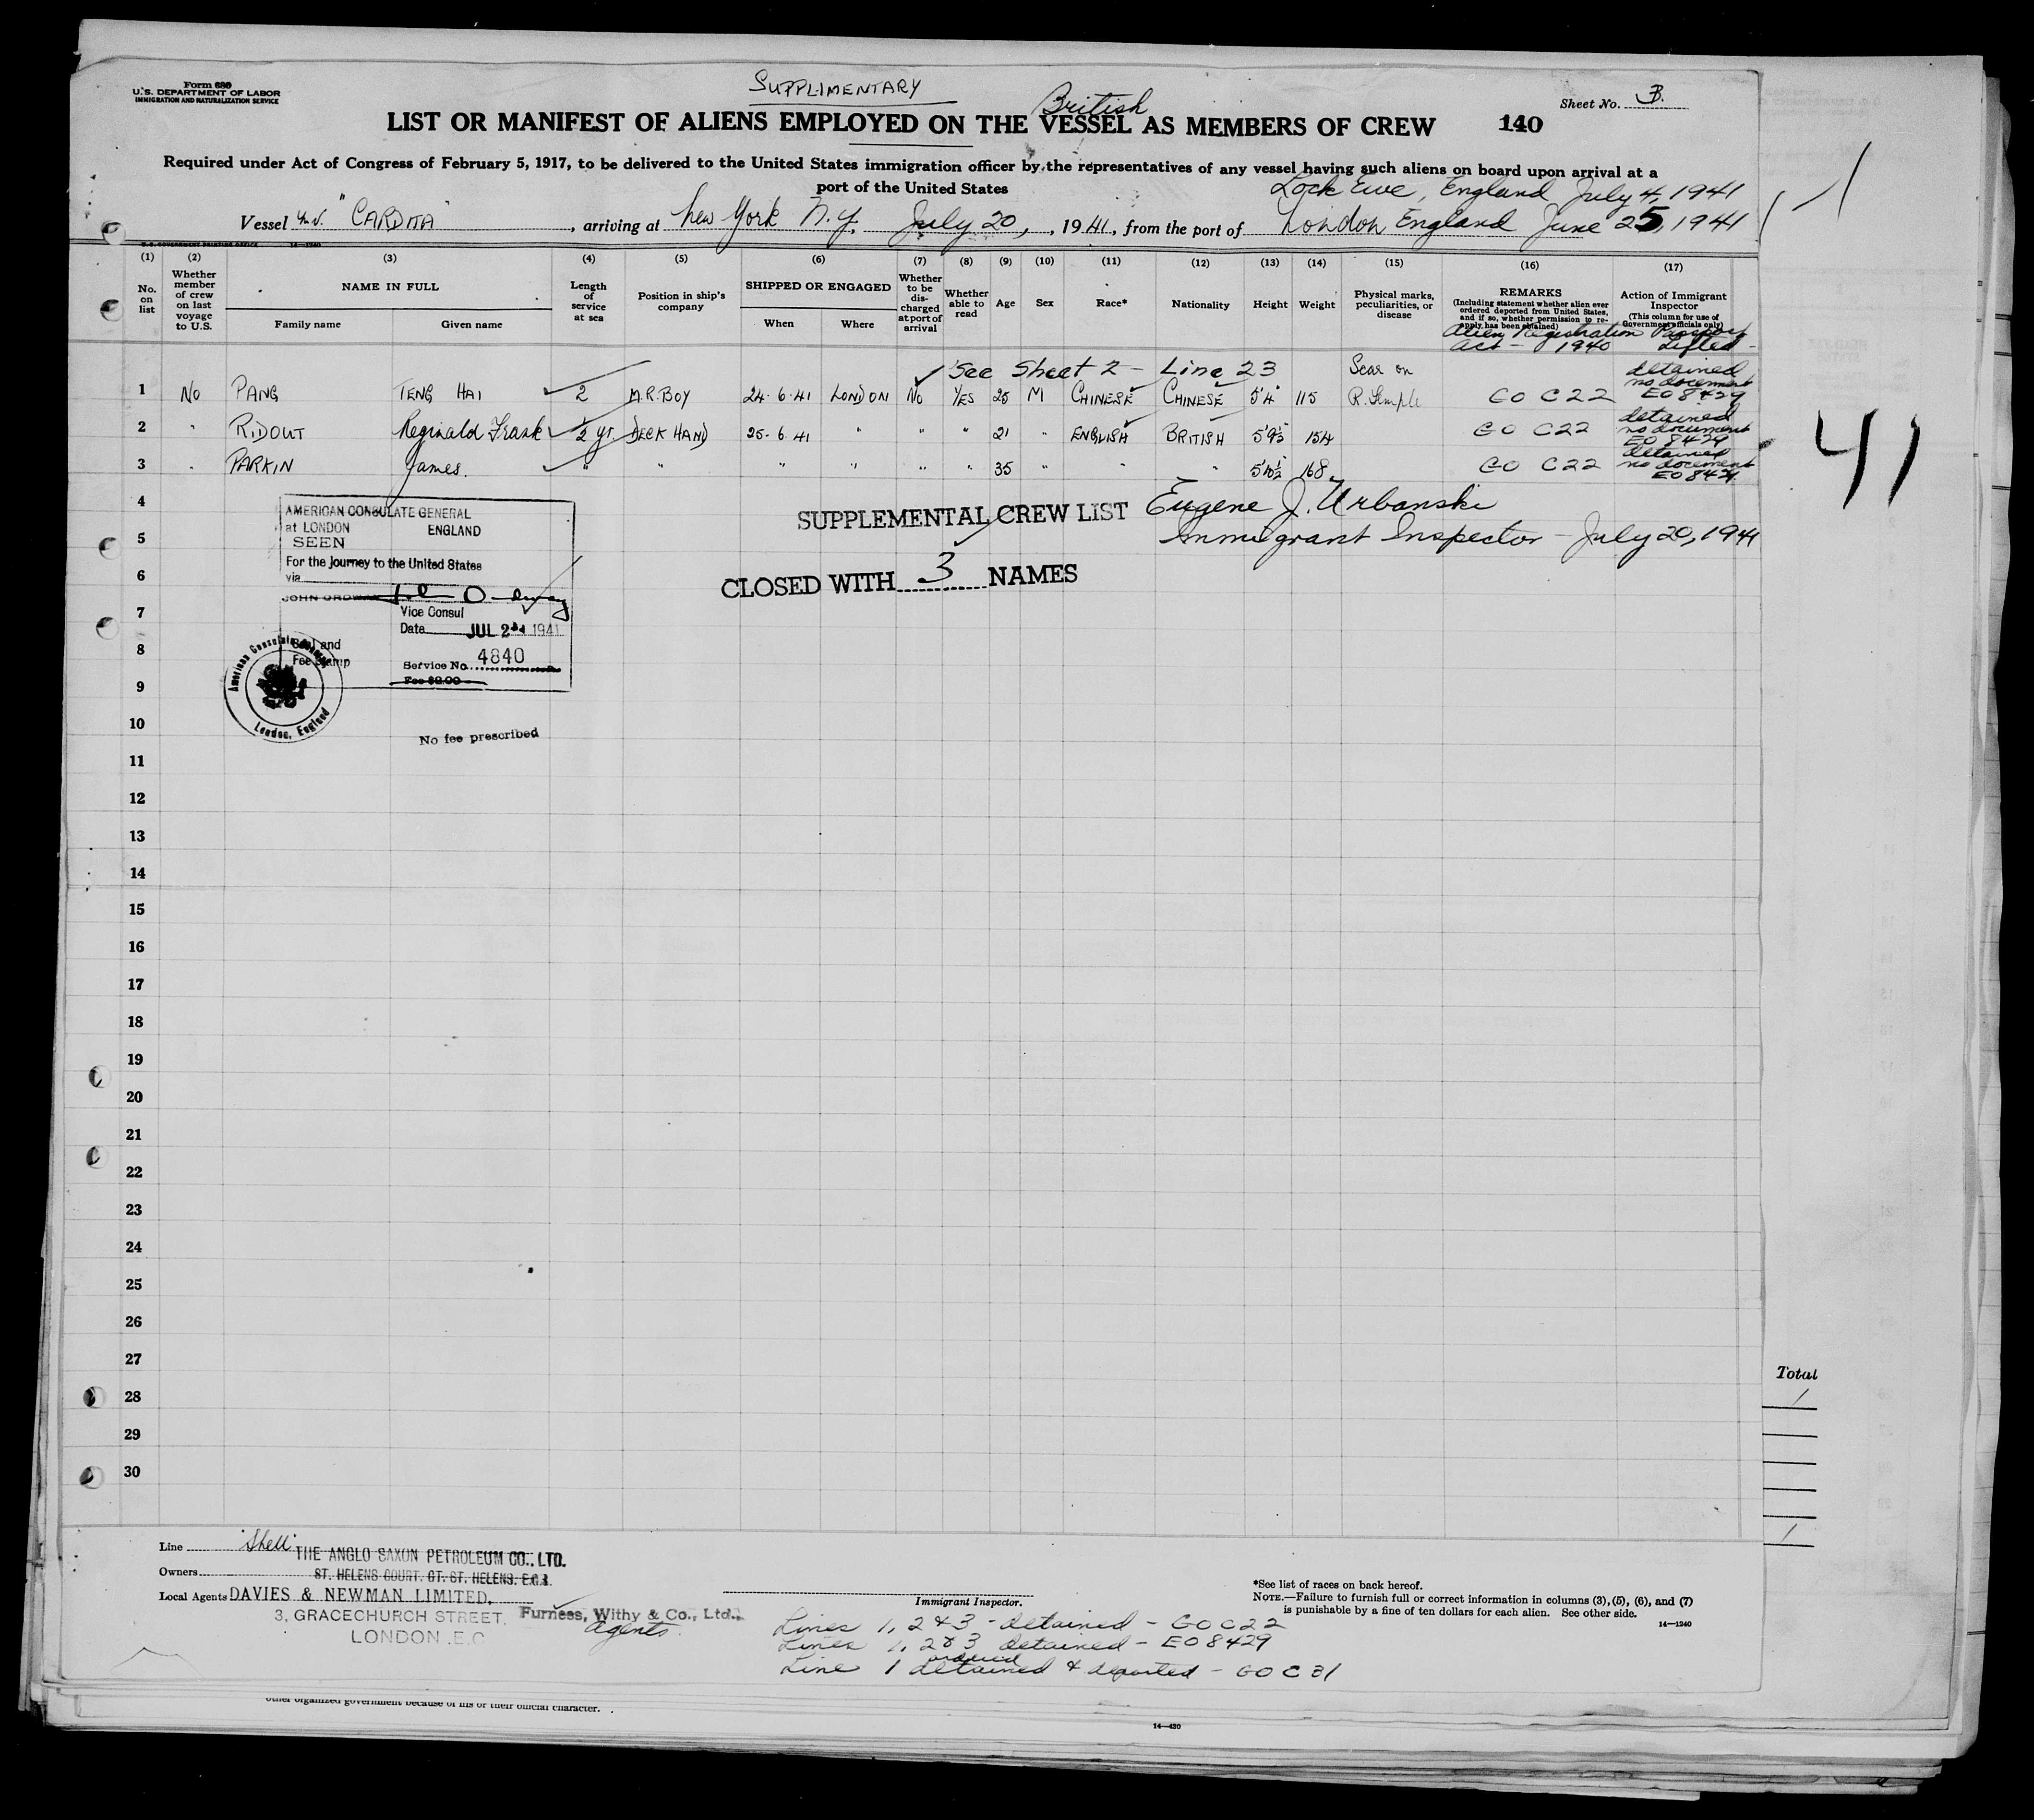 Form 680
U. S. DEPARTMENT OF LABOR
IMMIGRATION AND NATURALIZATION SERVICE
SUPPLIMENTARY
British
Sheet No. 3.
LIST OR MANIFEST OF ALIENS EMPLOYED ON THE VESSEL AS MEMBERS OF CREW 140
Required under Act of Congress of February 5, 1917, to be delivered to the United States immigration officer by the representatives of any vessel having such aliens on board upon arrival at a
port of the United States
Lock Ewe, England July 4, 1941
Vessel M.V. "CARDITA", arriving at New York N.Y. July 20, , 1941, from the port of London England June 25, 1941
U.S. GOVERNMENT PRINTING OFFICE 14-1240
(1) (2) (3) (4) (5) (6) (7) (8) (9) (10) (11) (12) (13) (14) (15) (16) (17)
No. on list
Whether member of crew on last voyage to U.S.
NAME IN FULL
Family name Given name
Length of service at sea
Position in ship's company
SHIPPED OR ENGAGED
When Where
Whether to be discharged at port of arrival
Whether able to read
Age
Sex
Race*
Nationality
Height
Weight
Physical marks, peculiarities, or disease
REMARKS
(Including statement whether alien ever ordered deported from United States, and if so, whether permission to reapply has been obtained)
Action of Immigrant Inspector
(This column for use of Government officials only)
Alien Registration Act - 1940
Passport Lifted -
See Sheet 2 - Line 23
1 No PANG TENG HAI 2 M.R. BOY 24.6.41 LONDON No YES 25 M CHINESE CHINESE 5'4" 115 Scar on R. Temple GO C22 detained no document EO 8429
2 " RIDOUT Reginald Frank ½ yr. DECK HAND 25.6.41 " " " 21 " ENGLISH BRITISH 5'9½ 154 GO C22 detained no document EO 8429
3 " PARKIN James. " " " " " " 35 " " " 5'10½ 168 GO C22 detained no document EO 8429
4
5
6
7
8
9
10
11
12
13
14
15
16
17
18
19
20
21
22
23
24
25
26
27
28
29
30
AMERICAN CONSULATE GENERAL
at LONDON ENGLAND
SEEN
For the journey to the United States
via
Vice Consul
Date JUL 2 1941
Seal and
Fee Stamp
Service No. 4840
Fee $2.00
American Consulate General
London, England
No fee prescribed
SUPPLEMENTAL CREW LIST
Eugene J. Urbanski
Immigrant Inspector - July 20, 1941
CLOSED WITH 3 NAMES
41
Total
1
1
Line "Shell"
THE ANGLO SAXON PETROLEUM CO., LTD.
Owners ST. HELENS COURT. GT. ST. HELENS. E.C.3.
Local Agents DAVIES & NEWMAN LIMITED.
3, GRACECHURCH STREET.
LONDON .E.C
Furness, Withy & Co., Ltd.,
Agents.
Immigrant Inspector.
Lines 1, 2 & 3 - detained - GO C22
Lines 1, 2 & 3 detained - EO 8429
Line 1 ordered detained & deported - GO C 31
*See list of races on back hereof.
NOTE.—Failure to furnish full or correct information in columns (3), (5), (6), and (7)
is punishable by a fine of ten dollars for each alien. See other side.
14—1240
other organized government because of his or their official character.
14—430